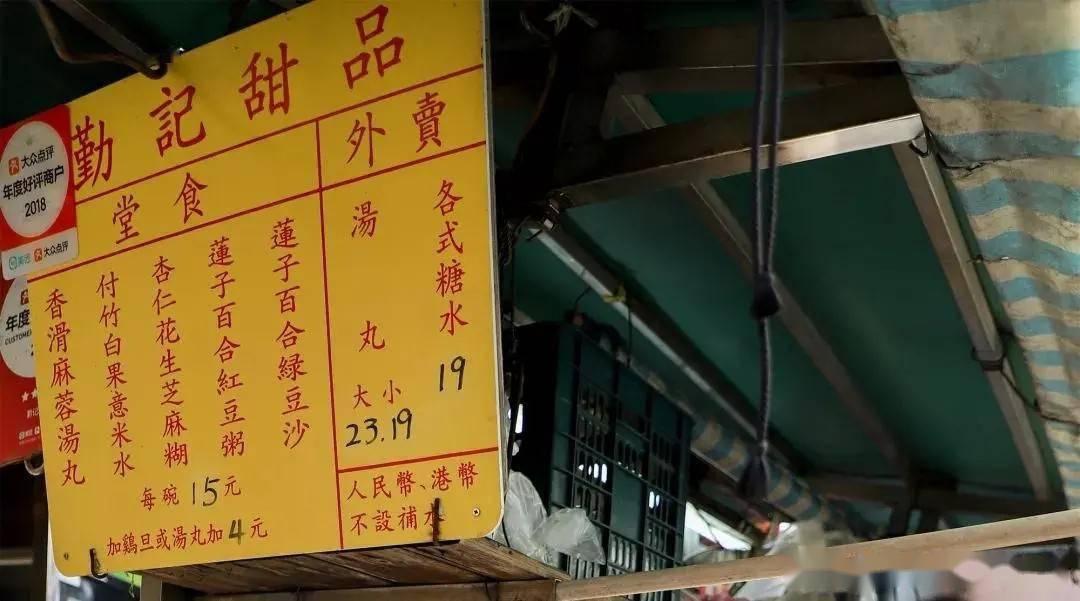 勤記甜品
堂食
蓮子百合綠豆沙
蓮子百合紅豆粥
杏仁花生芝麻糊
付竹白果意米水
香滑麻蓉湯丸
每碗15元
加鷄旦或湯丸加4元
外賣
各式糖水 19
湯丸
大小
23.19
人民幣、港幣
不設補水
大众点评
年度好评商户
2018
美团 大众点评
年度
CUSTOME